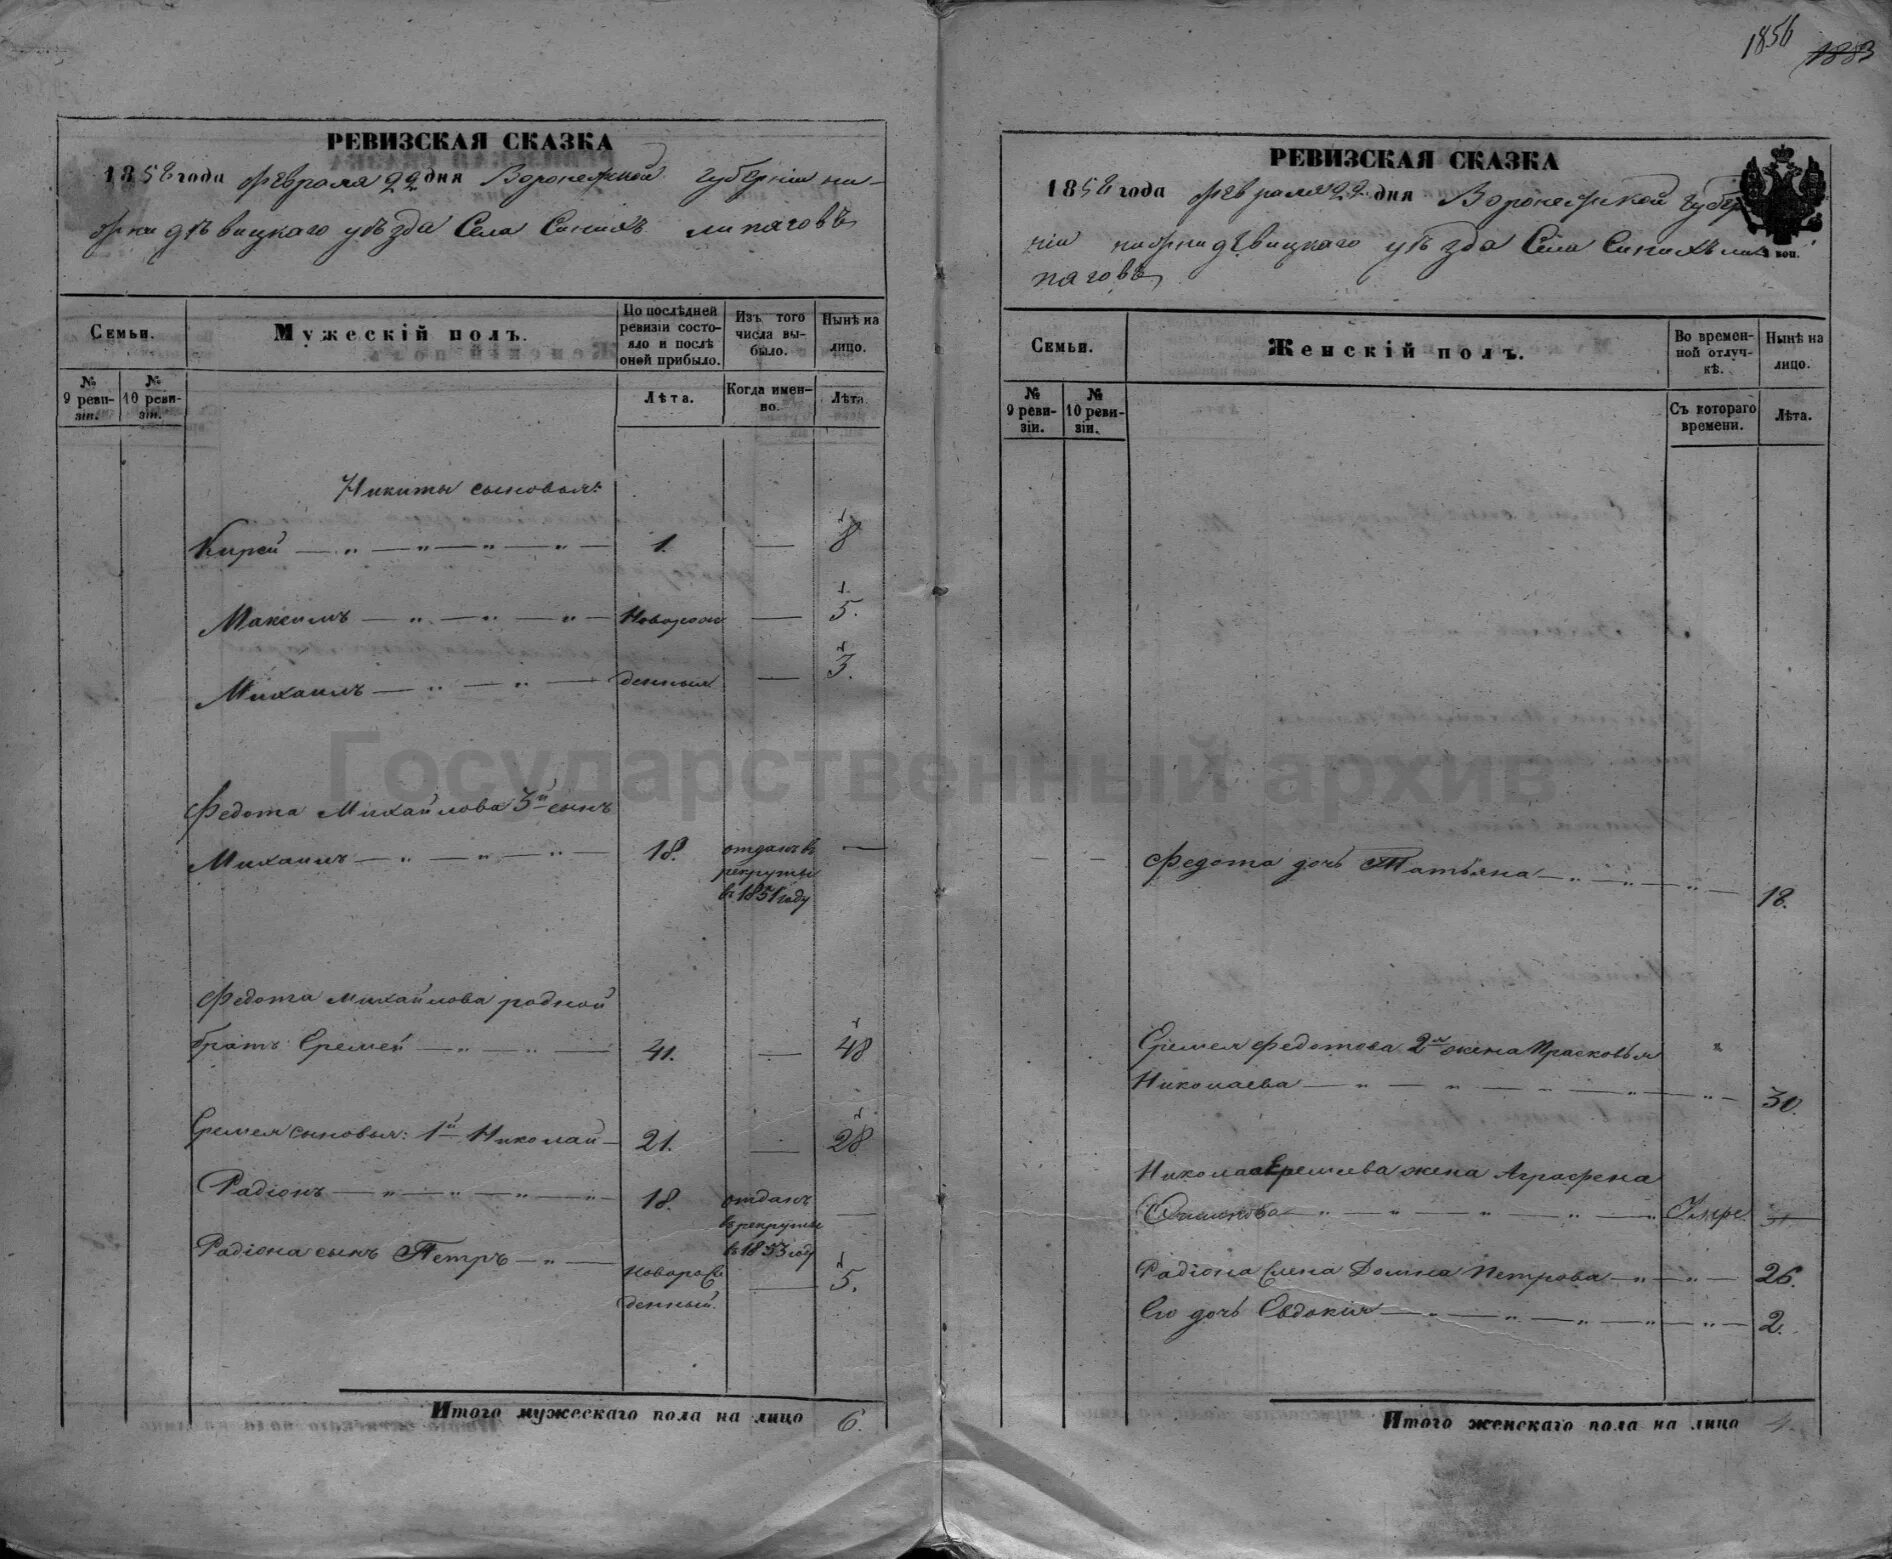 1856 1883
РЕВИЗСКАЯ СКАЗКА
1858 года февраля 22 дня Воронежской губернии ни-
жнедѣвицкаго уѣзда Села Синихъ липяговъ
Семьи.
Мужескій полъ.
По послѣдней ревизіи состояло и послѣ оней прибыло.
Изъ того числа выбыло.
Нынѣ на лицо.
№ 9 ревизіи.
№ 10 ревизіи.
Лѣта.
Когда именно.
Лѣта.
Никиты сыновья:
Кирей 1. 8
Максимъ Новорож 5.
Михаилъ денныя 3.
Федота Михайлова 3й сынъ
Михаилъ 18. отданъ в
рекруты
в 1851 году
Федота Михайлова родной
братъ Еремей 41. 48
Еремея сыновья: 1й Николай 21. 28
Радіонъ 18. отданъ
в рекруты
в 1853 году
Радіона сынъ Петръ новорож
денный. 5.
Итого мужескаго пола на лицо 6.
РЕВИЗСКАЯ СКАЗКА
1858 года февраля 22 дня Воронежской губер
ніи нижнедѣвицкаго уѣзда Села Синихъ ли
пяговъ
коп.
Семьи.
Женскій полъ.
Во временной отлучкѣ.
Нынѣ на лицо.
№ 9 ревизіи.
№ 10 ревизіи.
Съ котораго времени.
Лѣта.
Федота дочь Татьяна 18.
Еремея Федотова 2я жена Прасковья
Николаева 30.
Николая Еремеева жена Аграфена
Умре.
Радіона жена Домна Петрова 26.
Его дочь Евдокия 2.
Итого женскаго пола на лицо 4.
Государственный архив